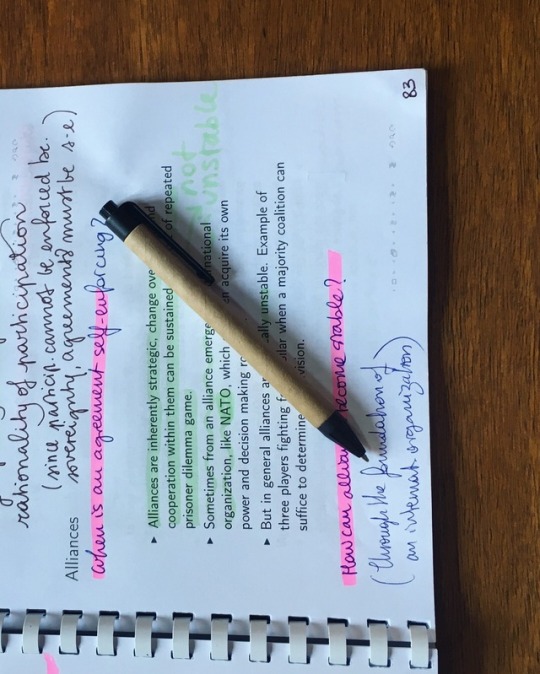 rationality of participation
(since particip. cannot be enforced bc.
sovereignty, agreements must be s-e)
Alliances
When is an agreement self-enforcing?
▸ Alliances are inherently strategic, change ove
cooperation within them can be sustained of repeated
prisoner dilemma game.
not
unstable
▸ Sometimes from an alliance emerge
organization, like NATO, which acquire its own
power and decision making
▸ But in general alliances unstable. Example of
three players fighting when a majority coalition can
suffice to determine
How can become stable?
(through the foundation of
an internat. organization)
83